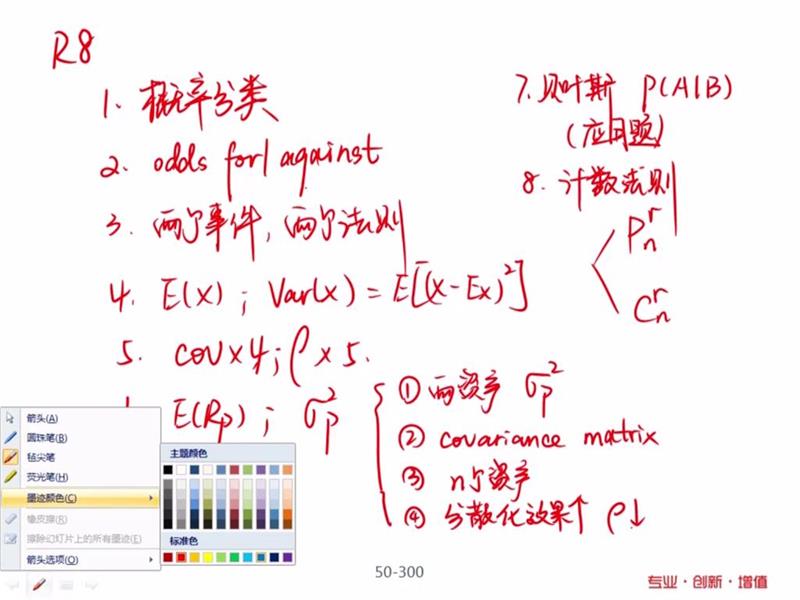 R8
1. 概率分类
2. odds for/against
3. 两个事件, 两个法则
4. E(X) ; Var(x) = E[(X-Ex)²]
5. cov×4; ρ×5.
E(Rp) ; σp²
① 两资产 σp²
② covariance matrix
③ n个资产
④ 分散化效果↑ ρ↓
7. 贝叶斯 P(A|B)
(应用题)
8. 计数法则
Pnr
Cnr
箭头(A)
圆珠笔(B)
毡尖笔
荧光笔(H)
墨迹颜色(C)
橡皮擦(R)
擦除幻灯片上的所有墨迹(E)
箭头选项(O)
主题颜色
标准色
50-300
专业·创新·增值